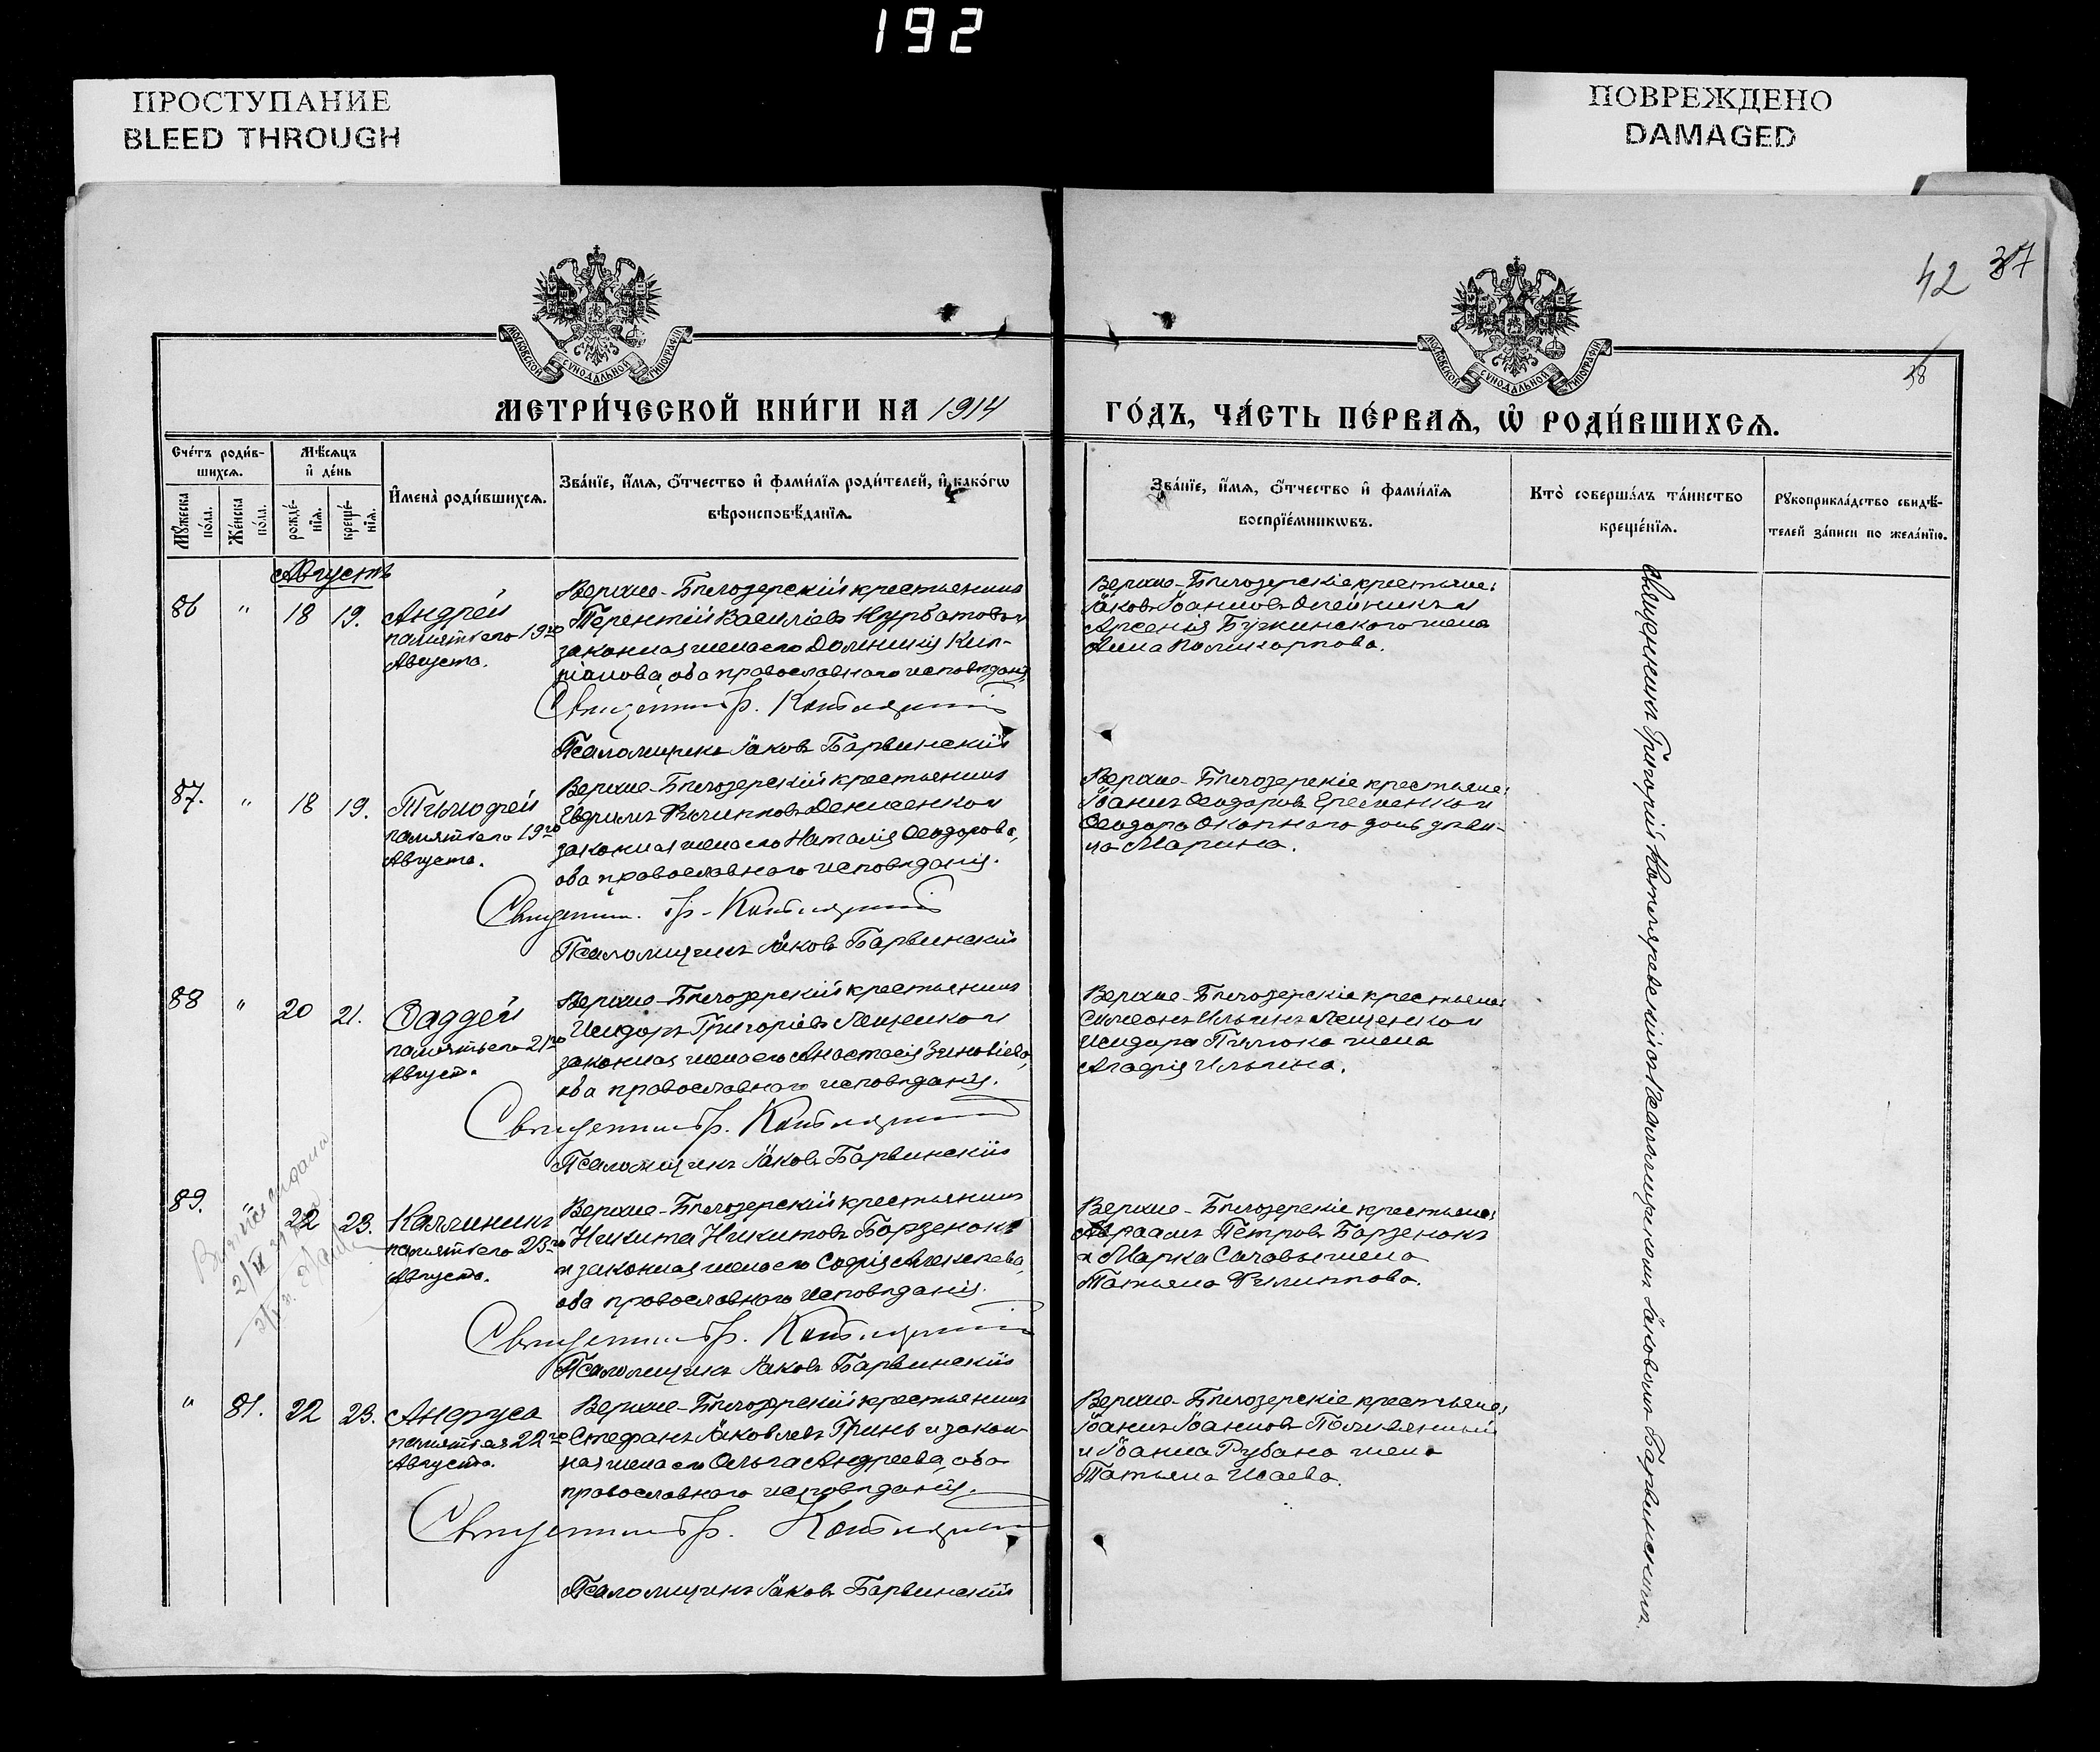 192
ПРОСТУПАНИЕ
BLEED THROUGH
ПОВРЕЖДЕНО
DAMAGED
42 37
38
МОСКОВСКОЙ СѴНОДАЛЬНОЙ ТИПОГРАФІИ
МОСКОВСКОЙ СѴНОДАЛЬНОЙ ТИПОГРАФІИ
МЕТРИ́ЧЕСКОЙ КНИ́ГИ НА 1914
ГО́ДЪ, ЧА́СТЬ ПЕ́РВАѦ, Ѡ҆ РОДИ́ВШИХСѦ.
Сче́тъ роди́вшихсѧ.
Мꙋ́жеска по́ла.
Же́нска по́ла.
Мѣ́сѧцъ и҆ де́нь
рожде́нїѧ.
креще́нїѧ.
И҆мена̀ роди́вшихсѧ.
Зва́нїе, и҆́мѧ, ѻ҆́тчество и҆ фами́лїѧ роди́телей, и҆ како́гѡ
вѣроисповѣ́данїѧ.
Зва́нїе, и҆́мѧ, ѻ҆́тчество и҆ фами́лїѧ
воспрїе́мникѡвъ.
Кто̀ соверша́лъ та́инство
креще́нїѧ.
Рꙋкоприкла́дство свидѣ́-
телей за́писи по жела́нїю.
Августъ
86 " 18 19. Андрей
память его 19го
Августа.
Верхне-Бѣлозерскій крестьянинъ
Терентій Василіевъ Курбатовъ и
законная жена его Домникія Кип-
ріанова, оба православнаго исповѣданія
Священникъ Гр. Котляревскій
Псаломщикъ Іаковъ Барвинскій
Верхне-Бѣлозерскіе крестьяне:
Іаковъ Іоанновъ Олейникъ и
Арсенія Бужинскаго жена
Анна Поликарпова.
87. " 18 19. Тимофей
память его 19го
Августа.
Верхне-Бѣлозерскій крестьянинъ
Ефримъ Филипповъ Денисенко и
законная жена его Наталія Ѳеодорова,
оба православнаго исповѣданія.
Священ. Гр. Котляревскій
Псаломщикъ Іаковъ Барвинскій
Верхне-Бѣлозерскіе крестьяне:
Іоаннъ Ѳеодоровъ Еременко и
Ѳеодора Окопнаго дочь дѣви-
ца Марина.
88 " 20 21. Ѳаддей
память его 21го
Август.
Верхне-Бѣлозерскій крестьянинъ
Исидоръ Григоріевъ Лещенко и
законная жена его Анастасія Зиновіева,
оба православнаго исповѣданія.
Священникъ Гр. Котляревскій
Псаломщикъ Іаковъ Барвинскій
Верхне-Бѣлозерскіе крестьяне:
Симеонъ Ильинъ Лещенко и
Исидора Пилюка жена
Агафія Ильина.
89. " 22 23. Каллиникъ
память его 23го
Августа.
Верхне-Бѣлозерскій крестьянинъ
Никита Никитовъ Борзенокъ
и законная жена его Софія Алексѣева,
оба православнаго исповѣданія.
Священникъ Гр. Котляревскій
Псаломщикъ Іаковъ Барвинскій
Верхне-Бѣлозерскіе крестьяне:
Авраамъ Петровъ Борзенокъ
и Марка Саловы жена
Татьяна Филиппова.
" 81. 22 23. Анфуса
память ея 22го
Августа.
Верхне-Бѣлозерскій крестьянинъ
Стефанъ Іаковлевъ Гринь и закон-
ная жена его Ольга Андреева, оба
православнаго исповѣданія.
Священникъ Гр. Котляревскій
Псаломщикъ Іаковъ Барвинскій
Верхне-Бѣлозерскіе крестьяне:
Іоаннъ Іоанновъ Поливянный
и Іоанна Рубана жена
Татьяна Исаева.
Священникъ Григорій Котляревскій съ Псаломщикомъ Іаковомъ Барвинскимъ.